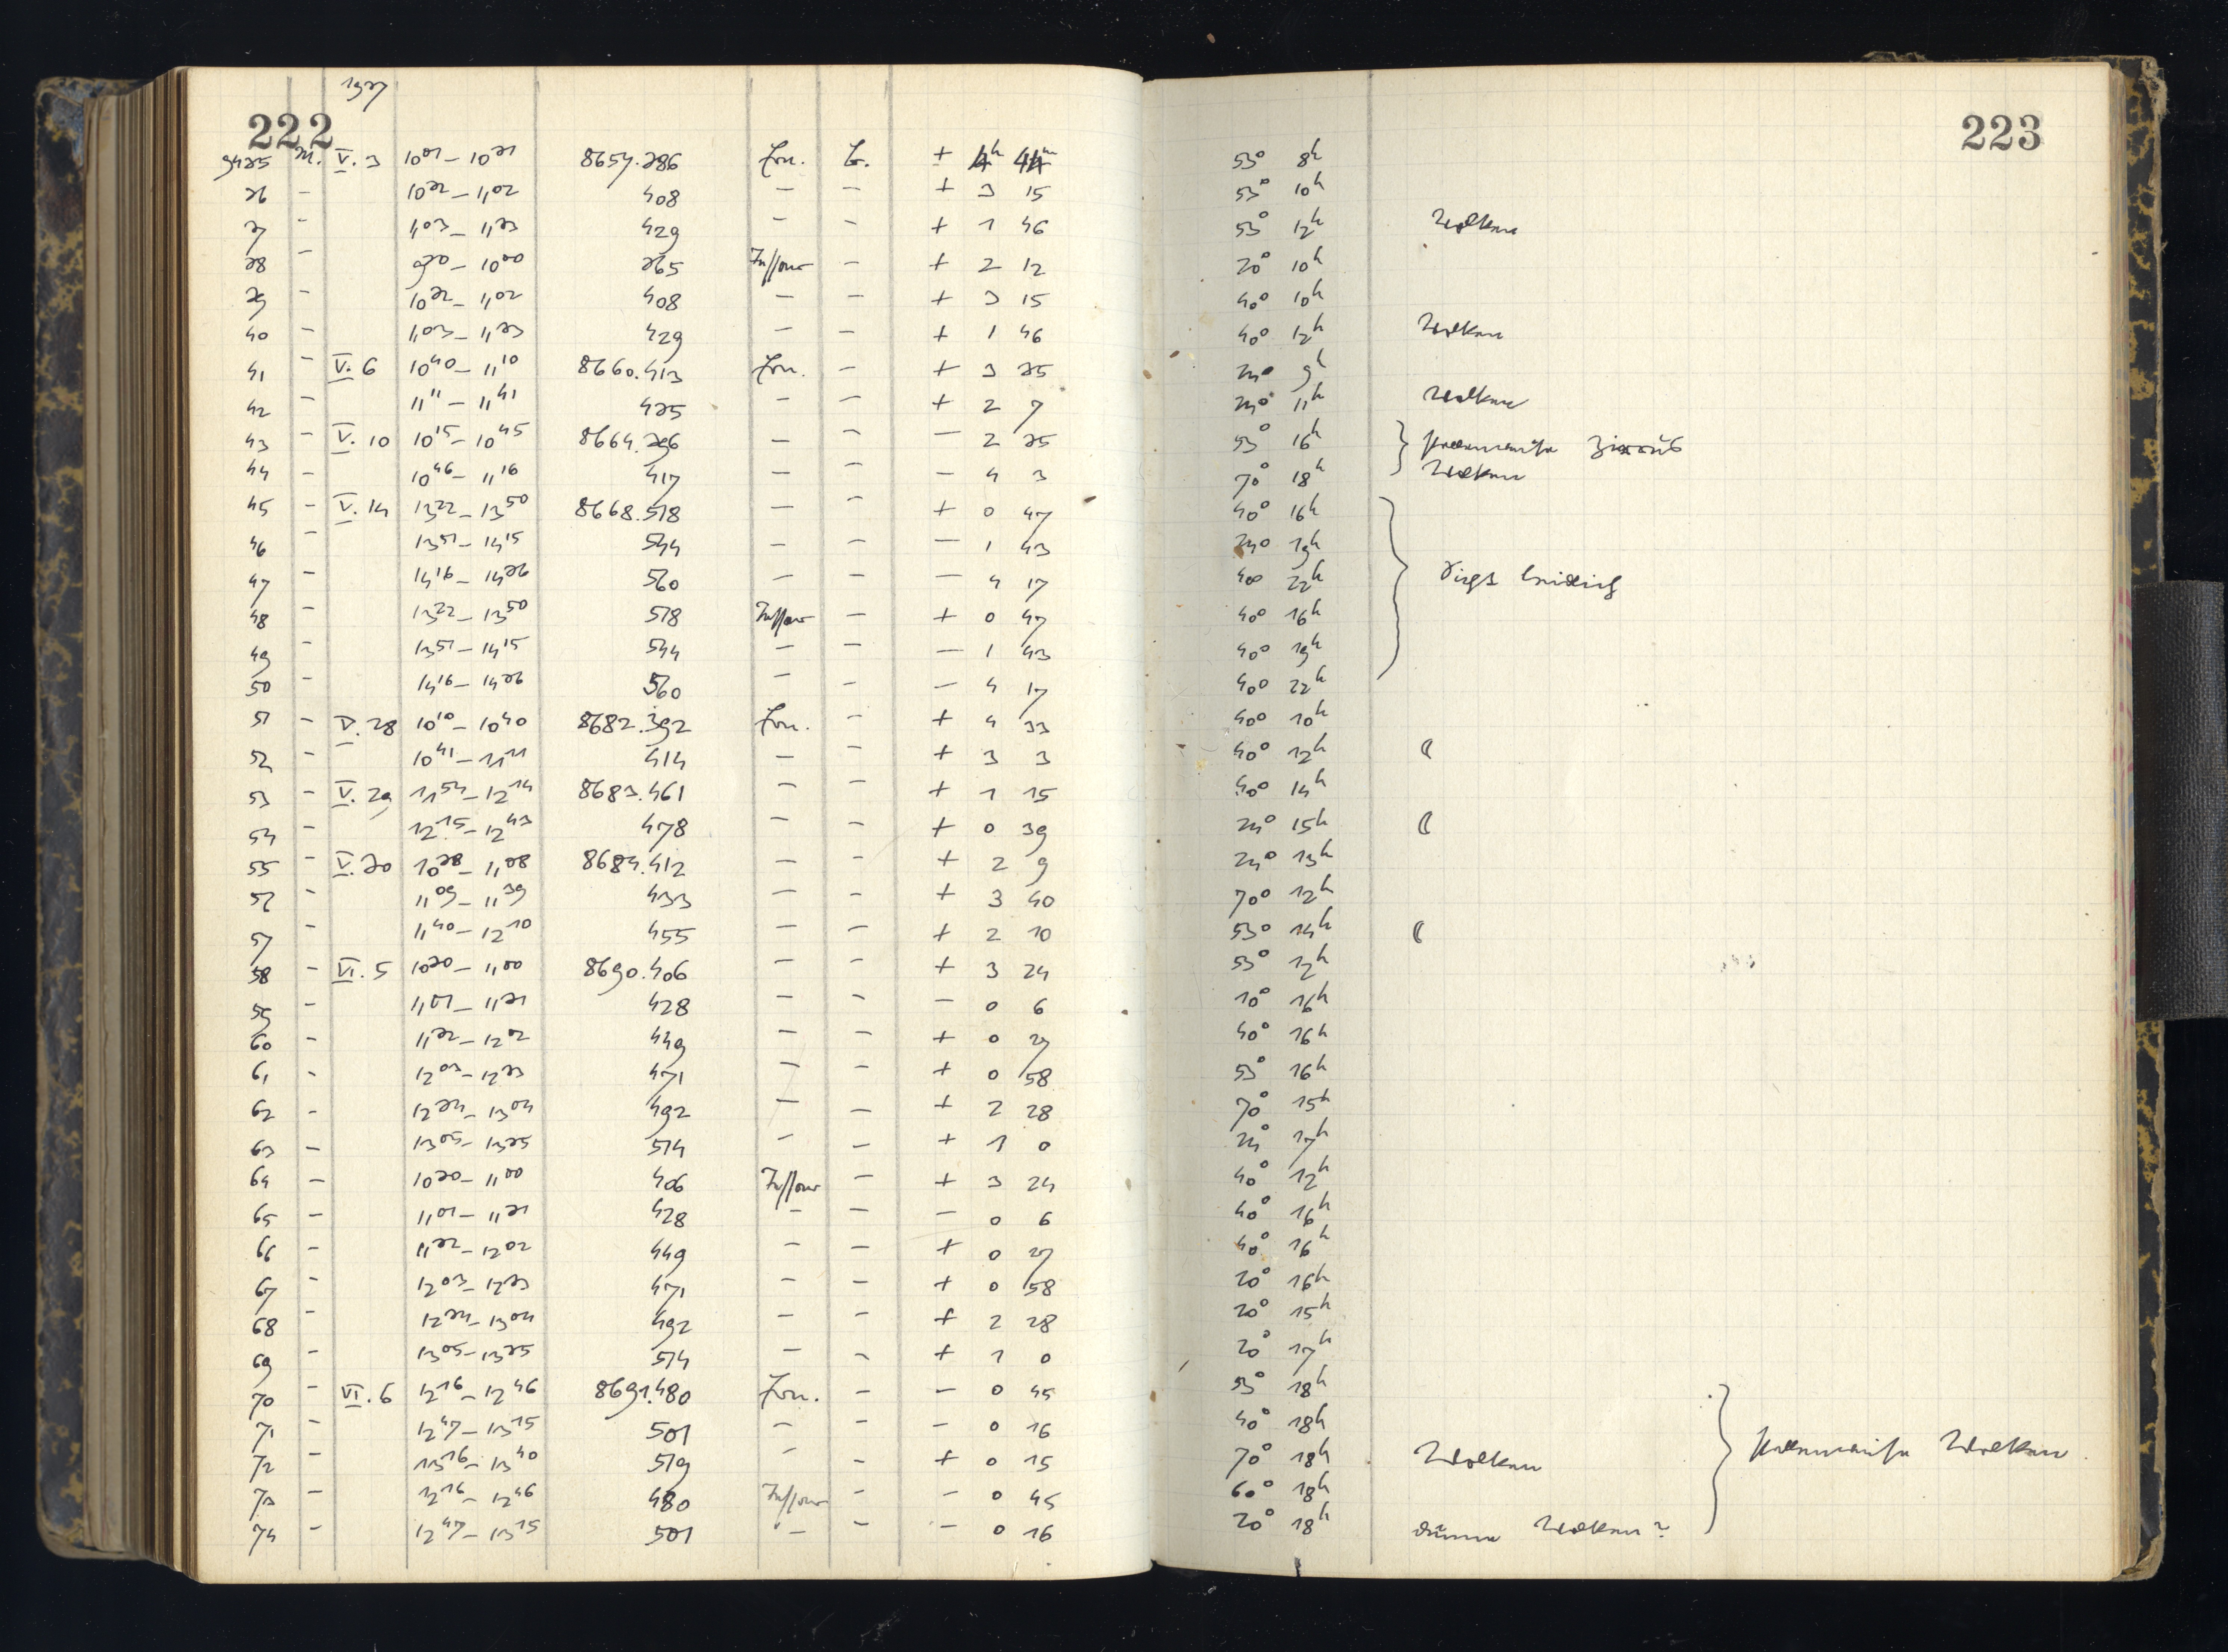 1937
222
9435 M. V. 3 10⁰¹–10³¹ 8657.386 Ern. Z. + 4ʰ 44ᵐ 53° 8ʰ
36 – 10³²–11⁰² 408 – – + 3 15 53° 10ʰ
37 – 11⁰³–11³³ 429 – – + 1 46 53° 12ʰ Wolken
38 – 9³⁰–10⁰⁰ 365 Tessar – + 2 12 20° 10ʰ
39 – 10³²–11⁰² 408 – – + 3 15 40° 10ʰ
40 – 11⁰³–11³³ 429 – – + 1 46 40° 12ʰ Wolken
41 – V. 6 10⁴⁰–11¹⁰ 8660.413 Ern. – + 3 35 24° 9ʰ
42 – 11¹¹–11⁴¹ 435 – – + 2 7 24° 11ʰ Wolken
43 – V. 10 10¹⁵–10⁴⁵ 8664.396 – – – 2 35 53° 16ʰ } stellenweise Zirrus
44 – 10⁴⁶–11¹⁶ 417 – – – 4 3 70° 18ʰ Wolken
45 – V. 14 13²²–13⁵⁰ 8668.518 – – + 0 47 40° 16ʰ
46 – 13⁵¹–14¹⁵ 544 – – – 1 43 24° 19ʰ
47 – 14¹⁶–14³⁶ 560 – – – 4 17 40° 22ʰ }
48 – 13²²–13⁵⁰ 518 Tessar – + 0 47 40° 16ʰ
49 – 13⁵¹–14¹⁵ 544 – – – 1 43 40° 19ʰ
50 – 14¹⁶–14³⁶ 560 – – – 4 17 40° 22ʰ
51 – V. 28 10¹⁰–10⁴⁰ 8682.392 Ern. – + 4 33 40° 10ʰ
52 – 10⁴¹–11¹¹ 414 – – + 3 3 40° 12ʰ ☾
53 – V. 29 11⁵⁴–12¹⁴ 8683.461 – – + 1 15 40° 14ʰ
54 – 12¹⁵–12⁴³ 478 – – + 0 39 24° 15ʰ ☾
55 – V. 30 10³⁸–11⁰⁸ 8684.412 – – + 2 9 24° 13ʰ
56 – 11⁰⁹–11³⁹ 433 – – + 3 40 70° 12ʰ
57 – 11⁴⁰–12¹⁰ 455 – – + 2 10 53° 14ʰ ☾
58 – VI. 5 10³⁰–11⁰⁰ 8690.406 – – + 3 24 53° 12ʰ
59 – 11⁰¹–11³¹ 428 – – – 0 6 10° 16ʰ
60 – 11³²–12⁰² 449 – – + 0 27 40° 16ʰ
61 – 12⁰³–12³³ 471 – – + 0 58 53° 16ʰ
62 – 12³⁴–13⁰⁴ 492 – – + 2 28 70° 15ʰ
63 – 13⁰⁵–13³⁵ 514 – – + 1 0 24° 17ʰ
64 – 10³⁰–11⁰⁰ 406 Tessar – + 3 24 40° 12ʰ
65 – 11⁰¹–11³¹ 428 – – – 0 6 40° 16ʰ
66 – 11³²–12⁰² 449 – – + 0 27 40° 16ʰ
67 – 12⁰³–12³³ 471 – – + 0 58 20° 16ʰ
68 – 12³⁴–13⁰⁴ 492 – – + 2 28 20° 15ʰ
69 – 13⁰⁵–13³⁵ 514 – – + 1 0 20° 17ʰ
70 – VI. 6 12¹⁶–12⁴⁶ 8691.480 Ern. – – 0 45 53° 18ʰ
71 – 12⁴⁷–13¹⁵ 501 – – – 0 16 40° 18ʰ
72 – 13¹⁶–13⁴⁰ 519 – – + 0 15 70° 18ʰ Wolken } stellenweise Wolken
73 – 12¹⁶–12⁴⁶ 480 Tessar – – 0 45 60° 18ʰ
74 – 12⁴⁷–13¹⁵ 501 – – – 0 16 20° 18ʰ dünne Wolken?
223